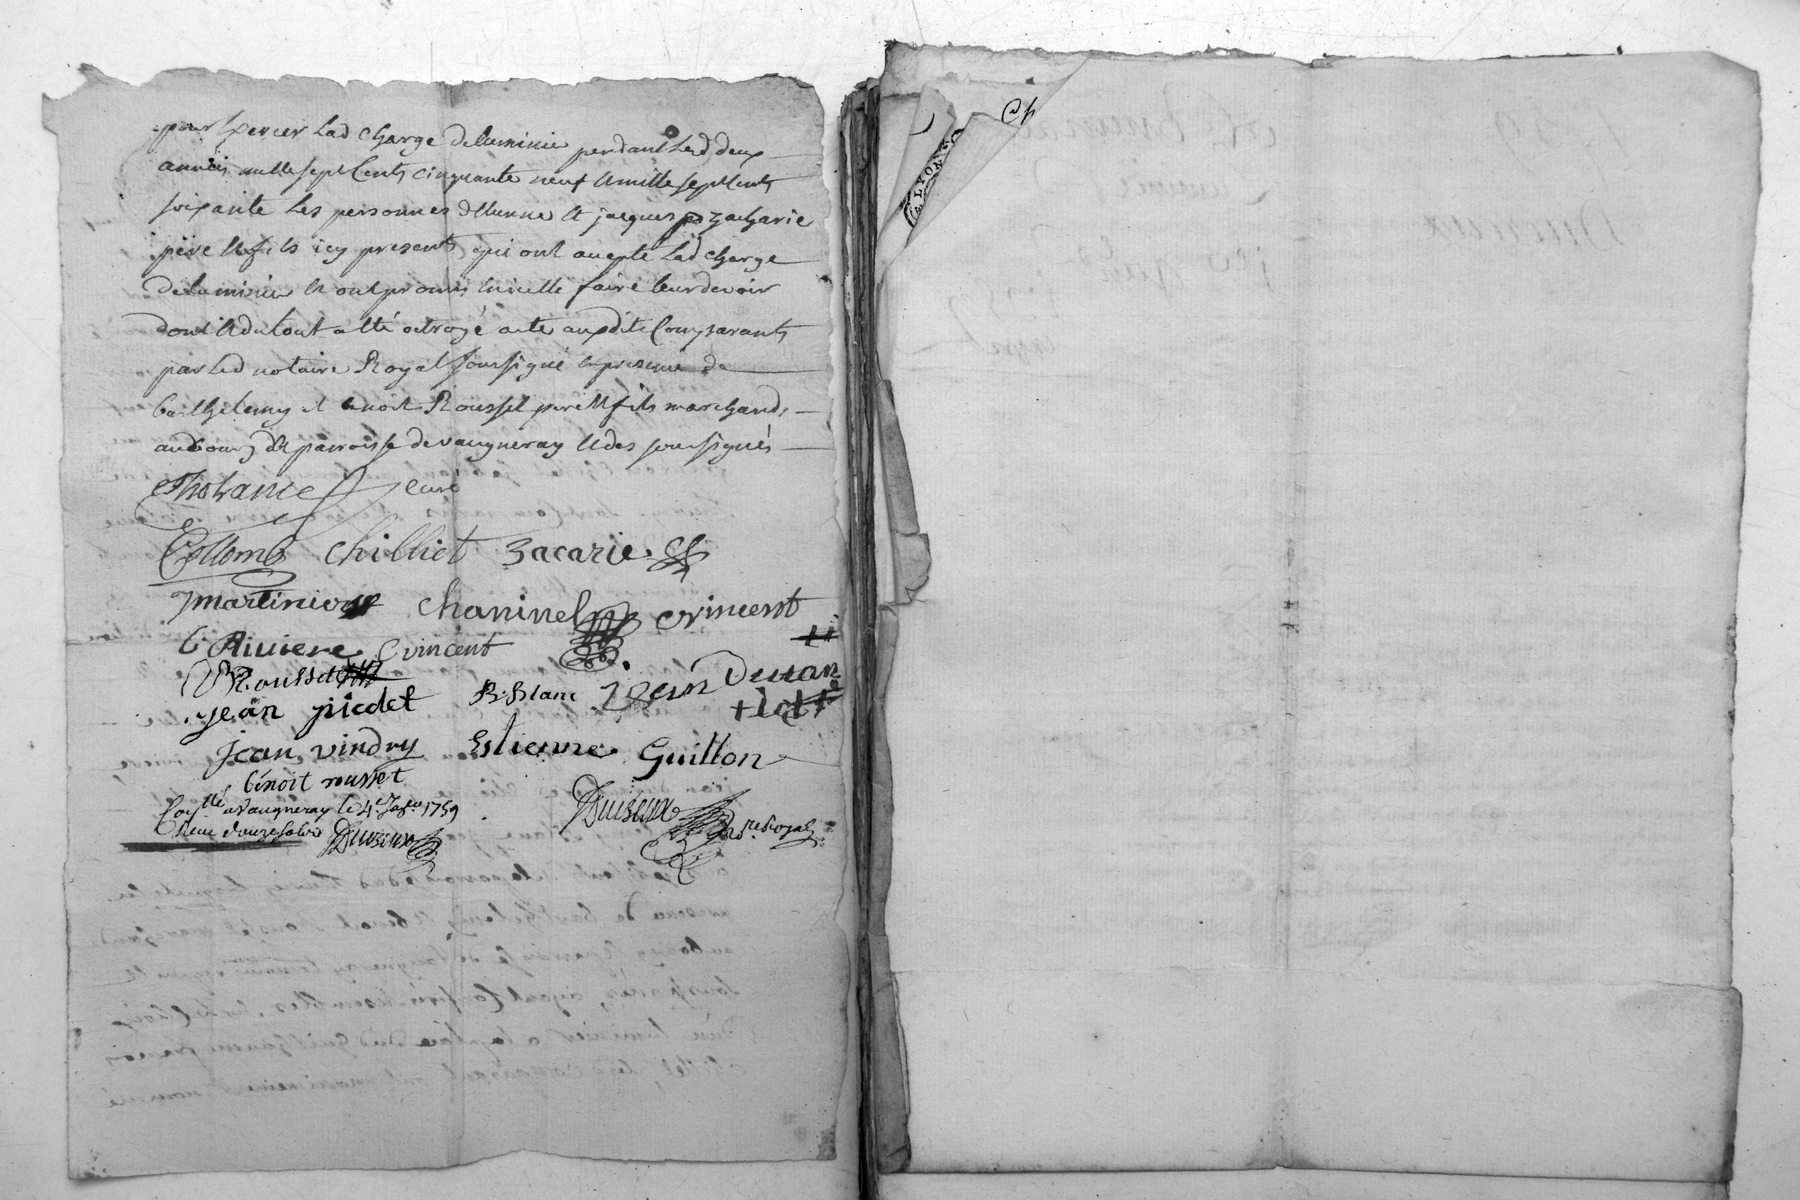 pour Exercer Lad charge de Luminier pendant Lesd deux
années mille sept Cents cinquante neuf & mille sept Cents
soixante Les personnes d'Etienne et jacques zacharie
père & fils icy presents qui ont accepté Lad charge
de Luminier & ont promis d'icelle faire leur devoir
dont & du tout a été octroyé acte auxdits Comparants
par Led notaire Royal soussigné en presence de
barthelemy et benoit Roussel pere & fils marchands
au bourg & parroisse de vaugneray & des soussignés
Tholance curé
Collomb chilliet zacarie
Martinier chaninel vincent
Riviere vincent
Rousset
jean picdet B. Blanc jean Duran
jean vindry Estienne Guitton
bénoit rousset
Duiseux
à Vaugneray le 4e 1759
Duiseux
CH
LYON